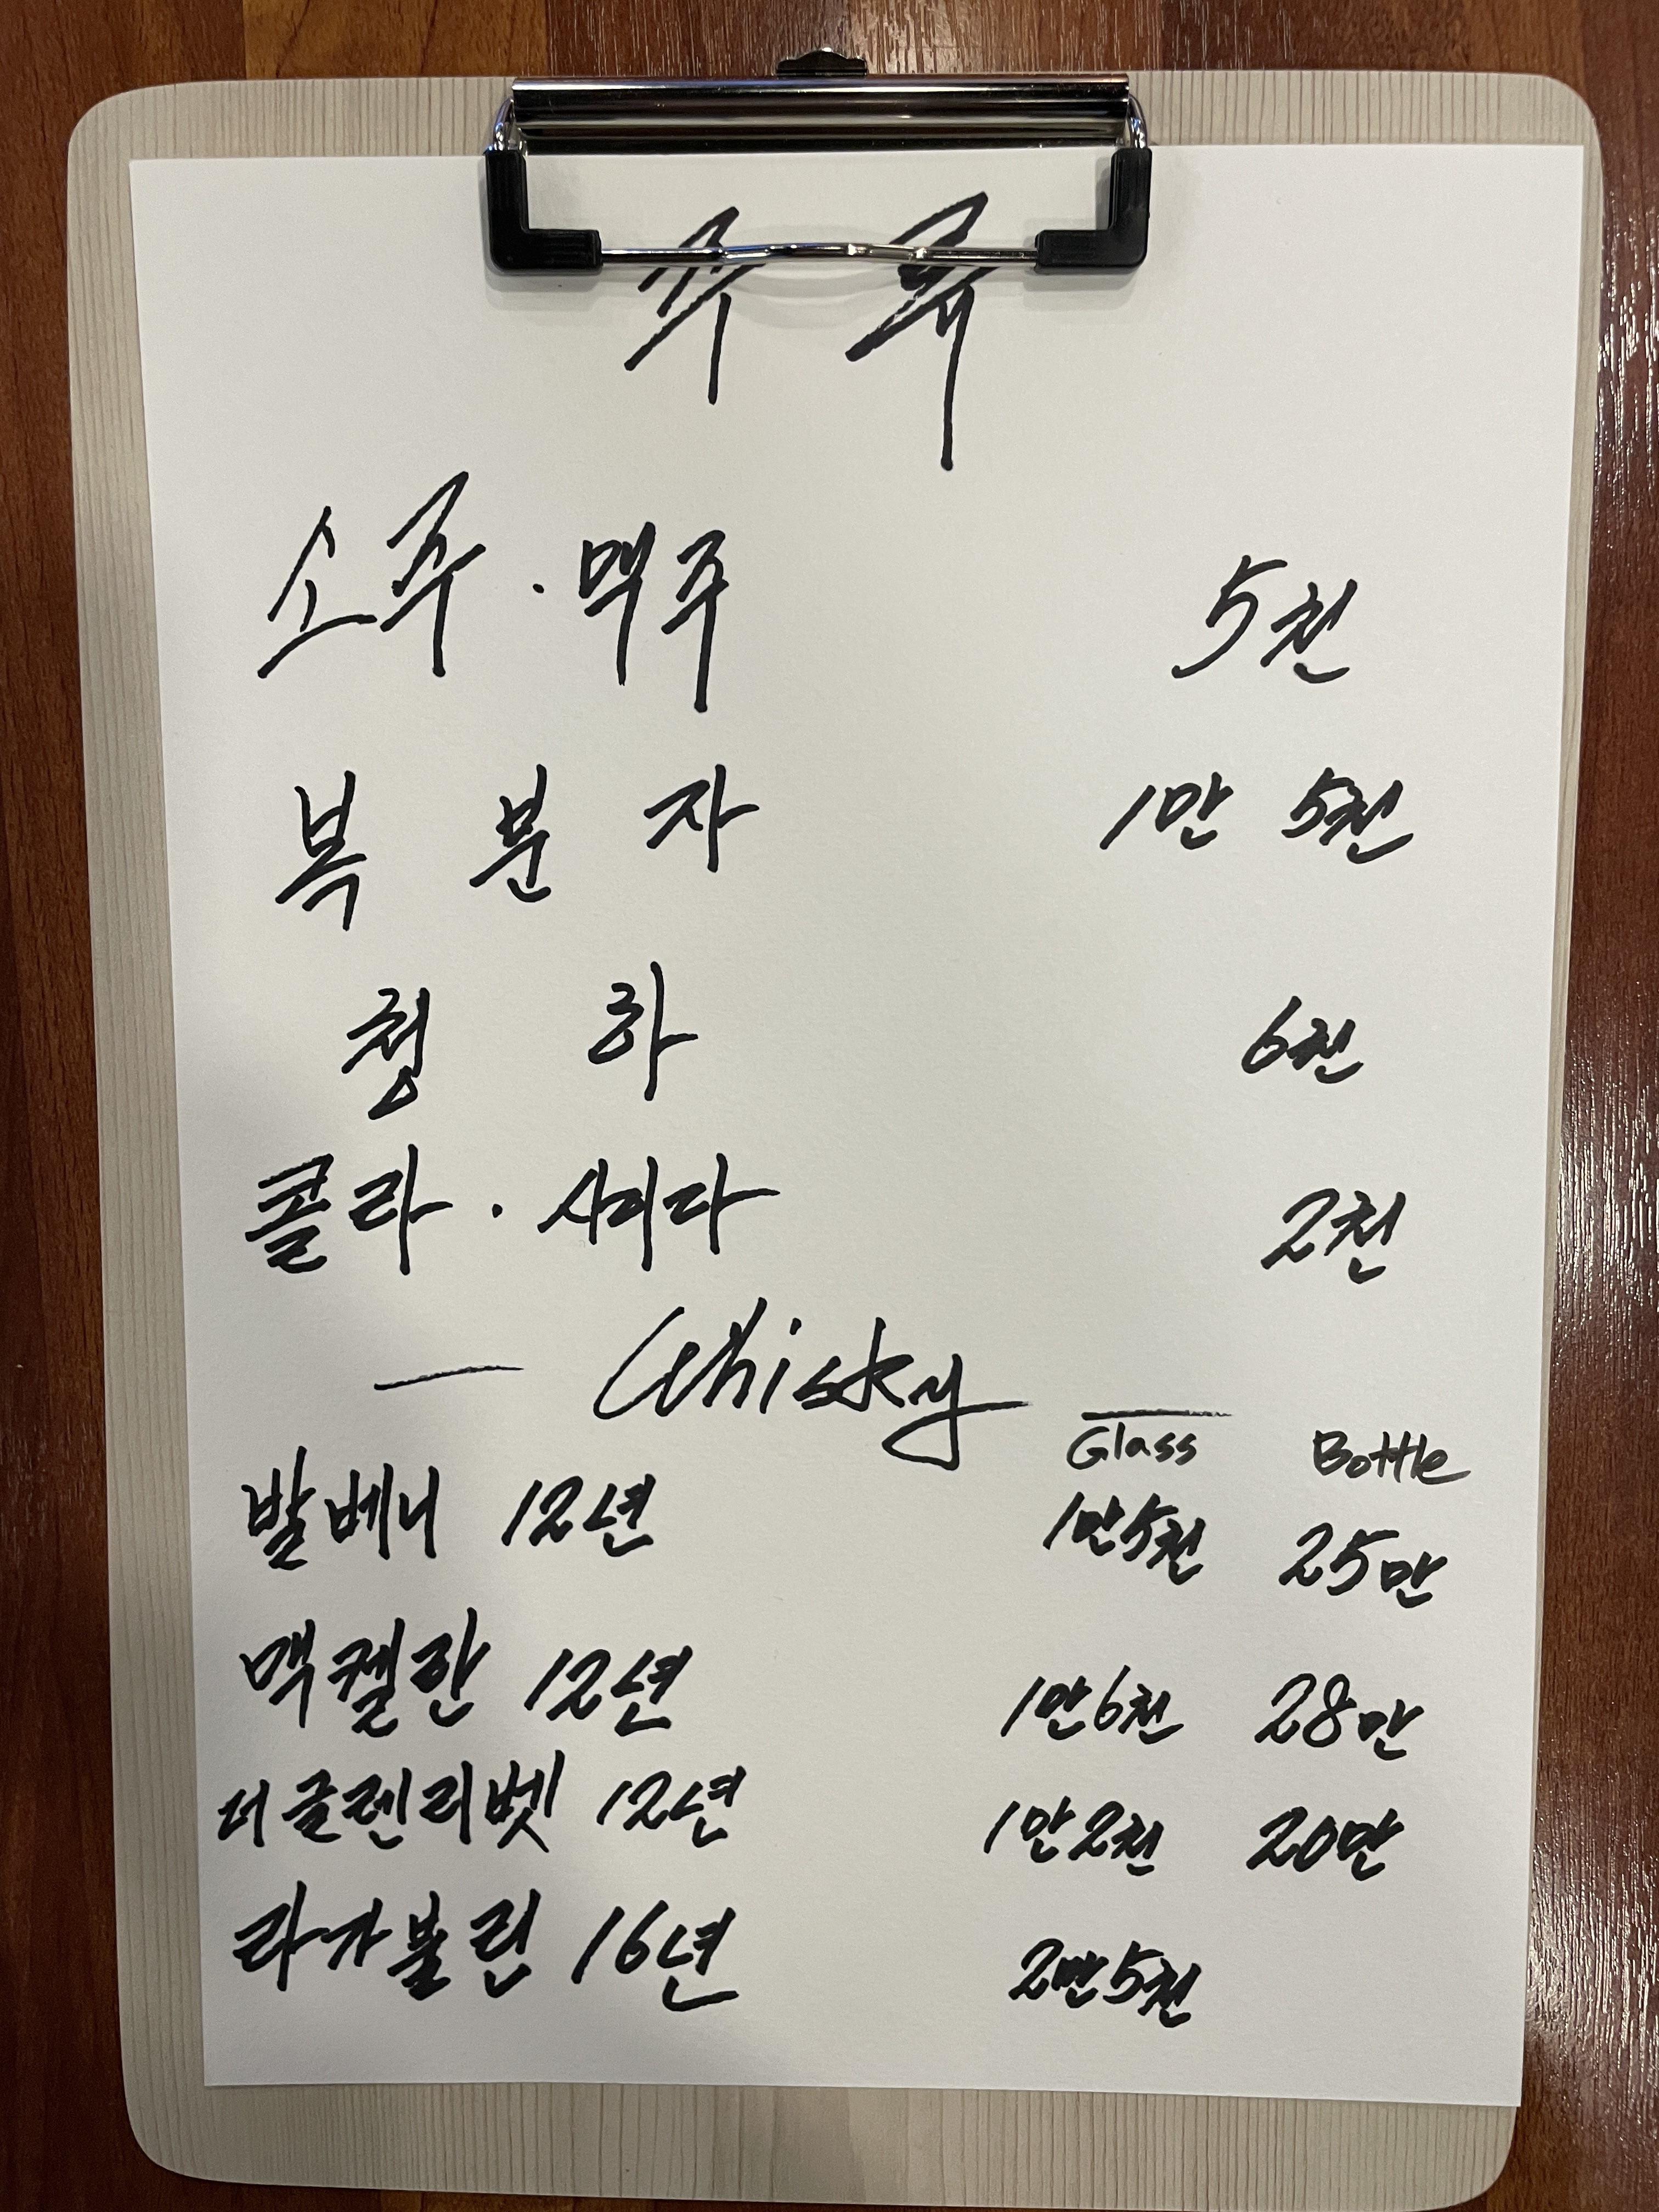 주 류
소주 · 맥주 5천
복 분 자 1만 5천
청 하 6천
콜라 · 사이다 2천
— Whisky —
Glass Bottle
발베니 12년 1만5천 25만
맥켈란 12년 1만6천 28만
더글렌리벳 12년 1만2천 20만
라가불린 16년 2만5천